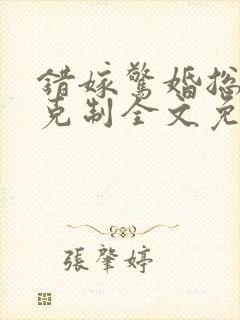 錯嫁驚婚總
克制全文免
張肇婷